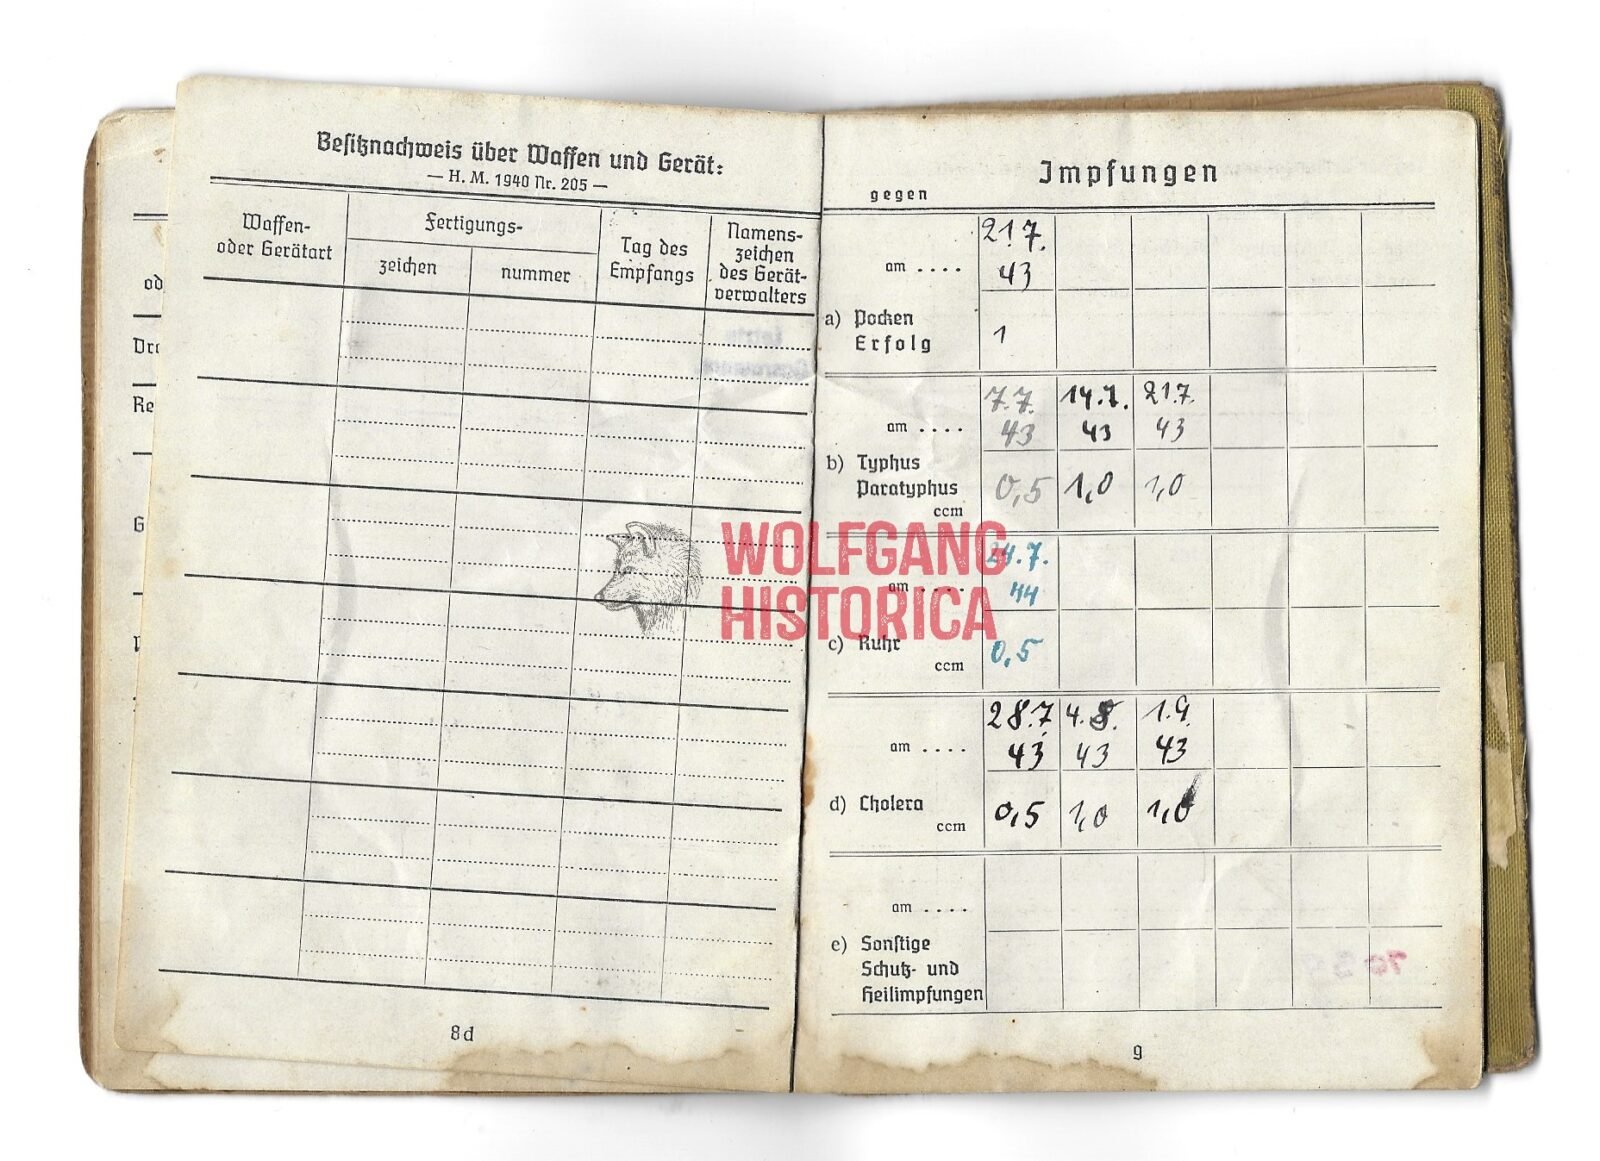 Besitznachweis über Waffen und Gerät:
— H. M. 1940 Nr. 205 —
Waffen-
oder Gerätart
Fertigungs-
zeichen
nummer
Tag des
Empfangs
Namens-
zeichen
des Gerät-
verwalters
8d
od
Re
G
Impfungen
gegen
am ....
21.7.
43
a) Pocken
Erfolg
1
am ....
7.7. 14.7. 21.7.
43 43 43
b) Typhus
Paratyphus
ccm
0,5 1,0 1,0
24.7.
am ....
44
c) Ruhr
ccm
0,5
28.7 4.8. 1.9
am ....
43 43 43
d) Cholera
ccm
0,5 1,0 1,0
am ....
e) Sonstige
Schutz- und
Heilimpfungen
9
WOLFGANG
HISTORICA